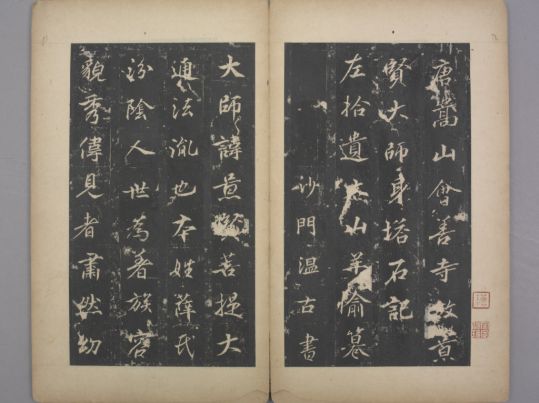 唐嵩山會善寺故景
賢大師身塔石記
左拾遺羊愉纂
沙門溫古書
大師諱景賢菩提大
通法胤也本姓薛氏
汾陰人世為著族容
貌秀偉見者肅然幼